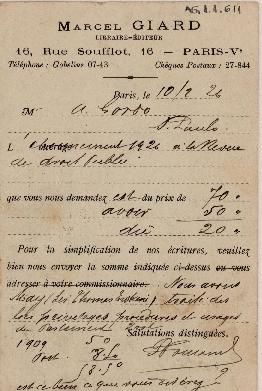 AG.1.1.611
MARCEL GIARD
LIBRAIRE-ÉDITEUR
16, Rue Soufflot, 16 — PARIS-Vᵉ
Téléphone : Gobelins 07-43 Chèques Postaux : 27-844
Paris, le 10/2 26
M A. Gordo
S. Paulo
L' 1926 à la Revue
de droit public
que vous nous demandez est du prix de 70 "
avoir 50 "
dû 20 "
Pour la simplification de nos écritures, veuillez
bien nous envoyer la somme indiquée ci-dessus ou vous
adresser à votre commissionnaire. Nous avons
May (Sir Thomas Erskine), traité des
lois, privilèges, procédures et usages
du Parlement
Salutations distinguées.
1909 50
Port. 8.50
58.50
est-ce bien ce que vous désirez ?